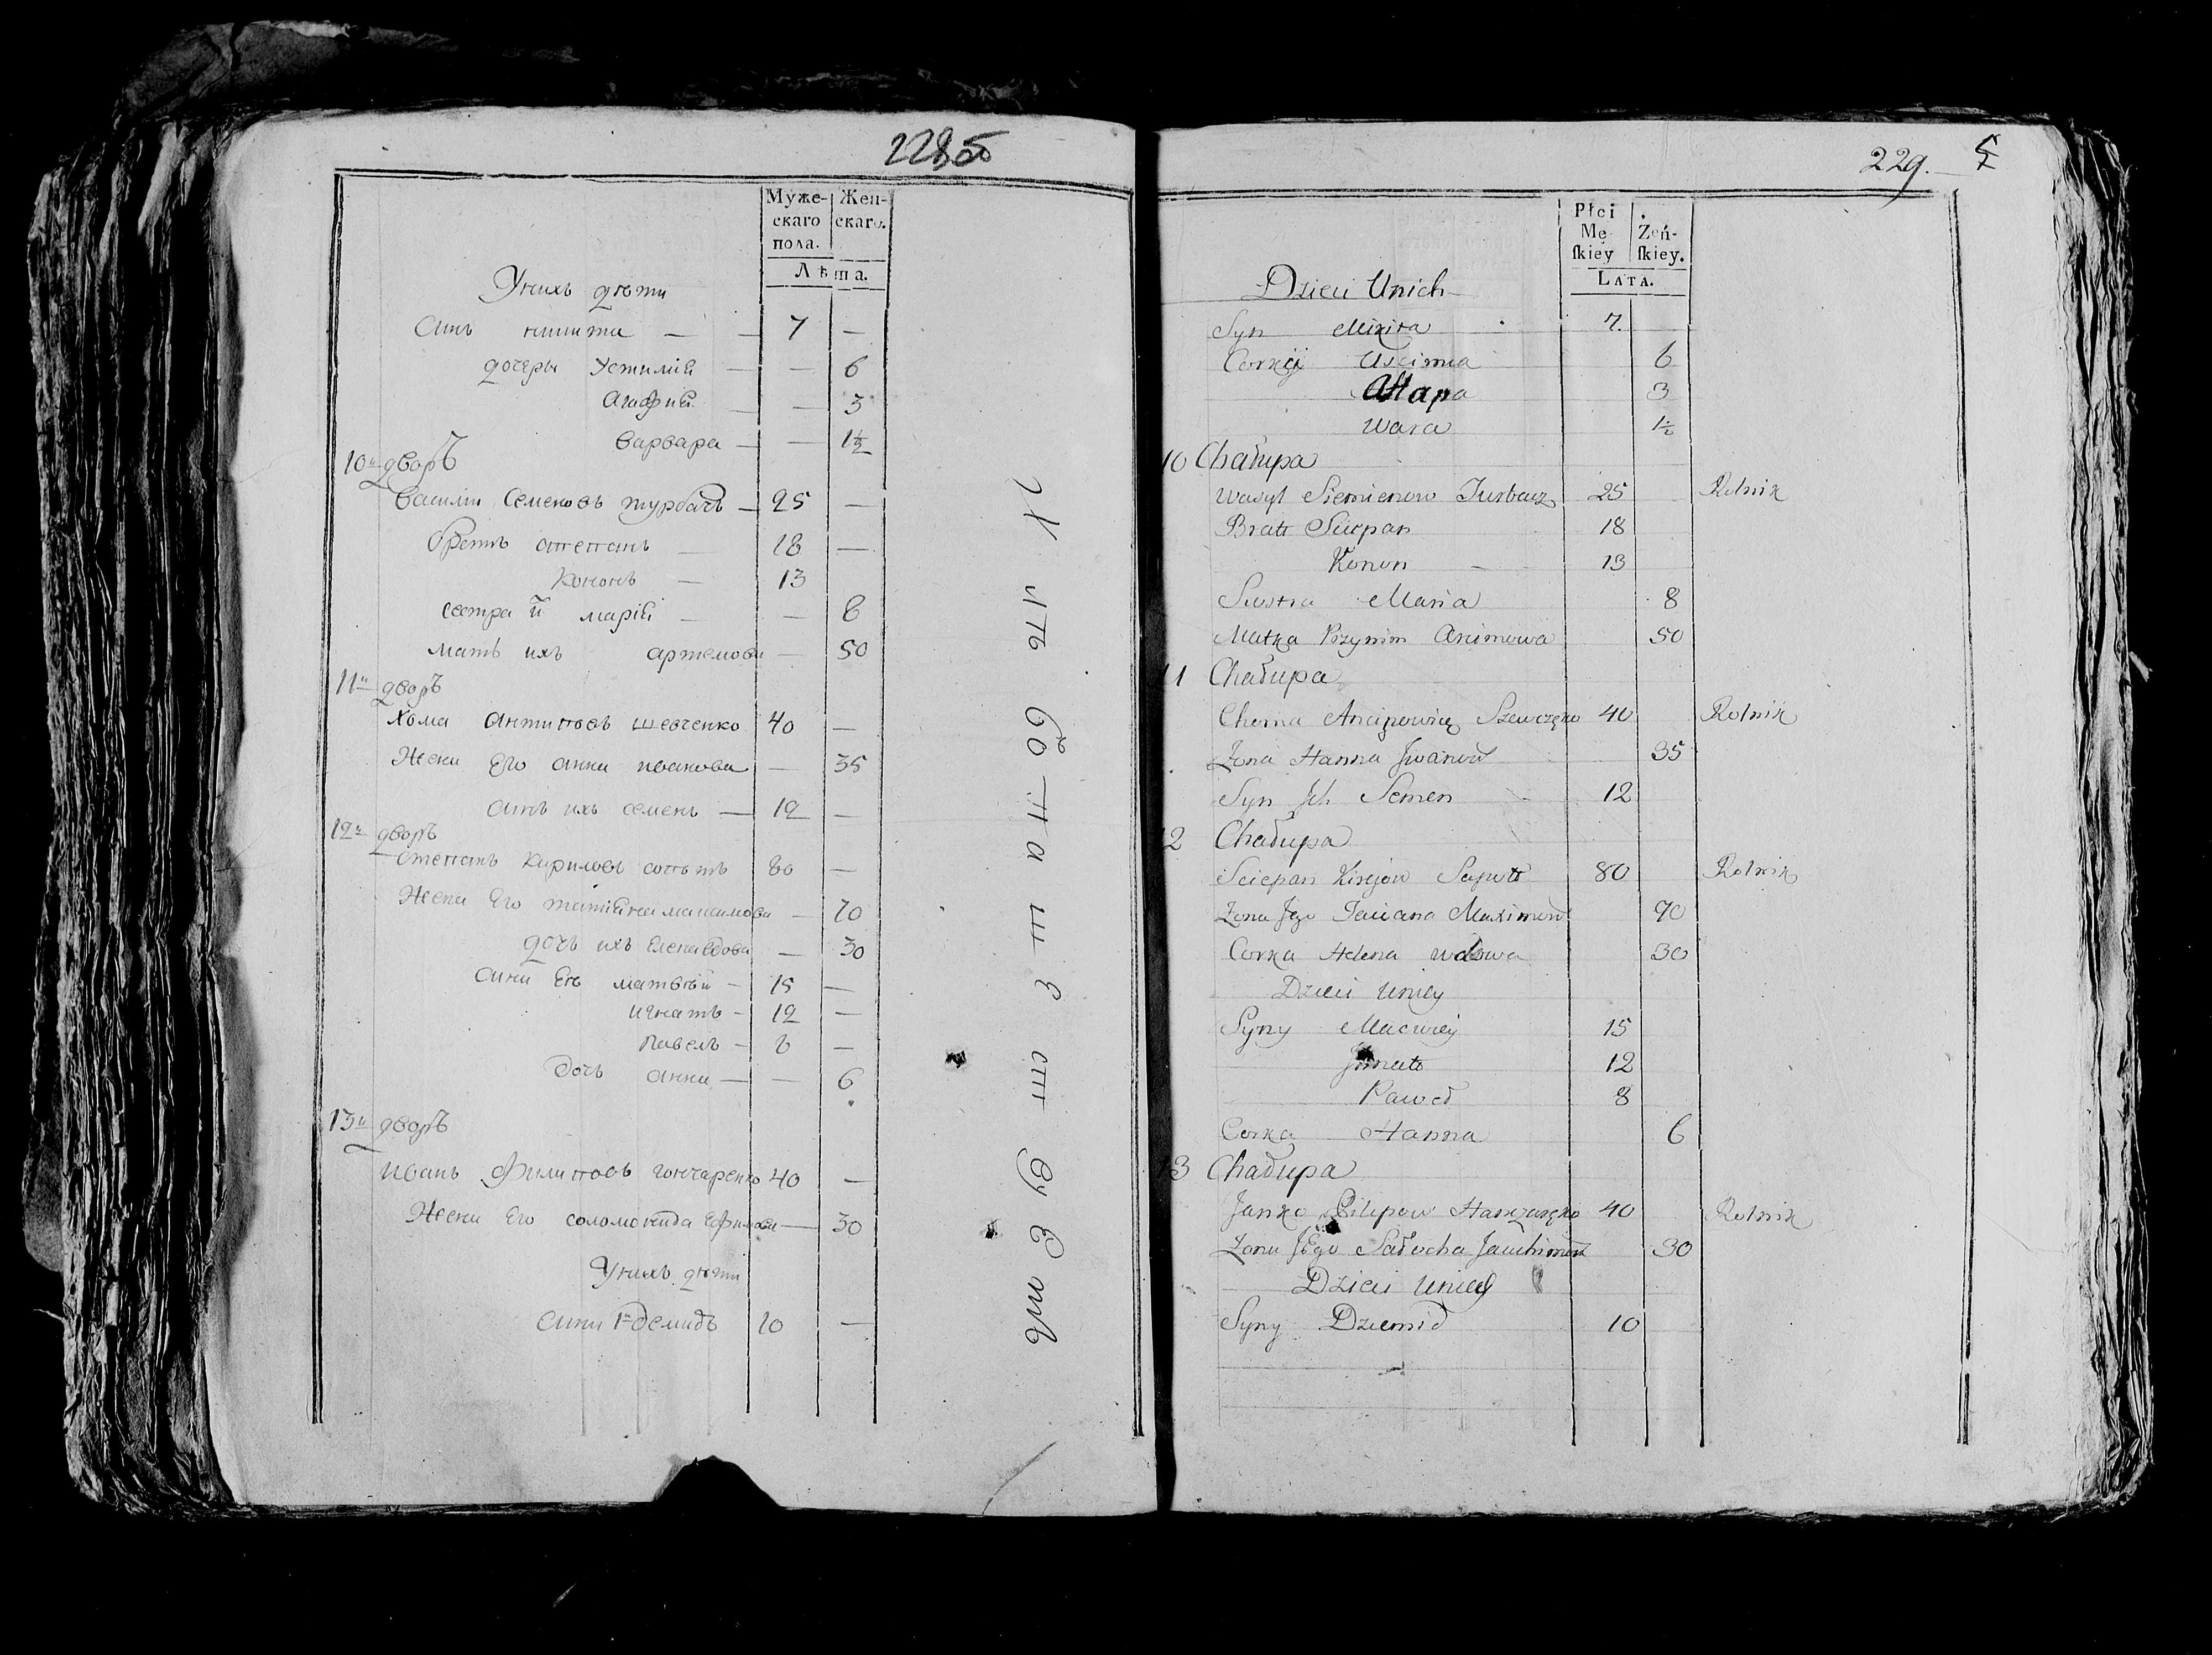 228 об
Муже-
скаго
пола.
Жен-
скаго.
Лѣта.
Унихъ дѣти
Синъ никита — 7 —
дочеры Устимія — — 6
Агафия — — 3
варвара — — 1½
10й дворъ
Василій Семеновъ турбачъ — 25 —
братъ степанъ — 18 —
Кононъ — 13
сестра й марія — — 8
мать ихъ артемова — 50
11й дворъ
Хома антиповъ шевченко 40 —
Жена Его анна иванова — 35
синъ ихъ семенъ — 12 —
12й дворъ
степанъ Кириловъ 80 —
Жена Его татіяна максимова — 70
дочъ ихъ Елена вдова — 30
сини Еѣ матвѣй — 15 —
Игнатъ — 12 —
Павелъ — 8 —
дочъ анна — — 6
13й дворъ
иванъ Филиповъ гончаренко 40 —
Жена Его соломонида Ефимова — 30
Унихъ дѣти
сини 1й демидъ 10 —
229.
Płci
Mę-
skiey
Żeń-
skiey.
LATA.
Dzieci Unich
Syn Mikita 7.
Corki Uscimia 6
3
Wara 1½
10 Chałupa
Wasyl Siemienow Turbacz 25 Rolnik
Bratt Sciepan 18
Konon 13
Siostra Maria 8
Matka Przynim 50
11 Chałupa
Choma Ancipowicz Szewczęko 40 Rolnik
Zona Hanna Jwanow 35
Syn Jch Semen 12
12 Chałupa
Sciepan 80 Rolnik
Zona Jego Taciana Maximow 70
Corka Helena wdowa 30
Dzieci Uniey
Syny Maciwiey 15
12
Paweł 8
Corka Hanna 6
13 Chałupa
Janko Pilipow Hanczaręko 40 Rolnik
Zona JEgo 30
Dzieci Unich
Syny Dziemid 10